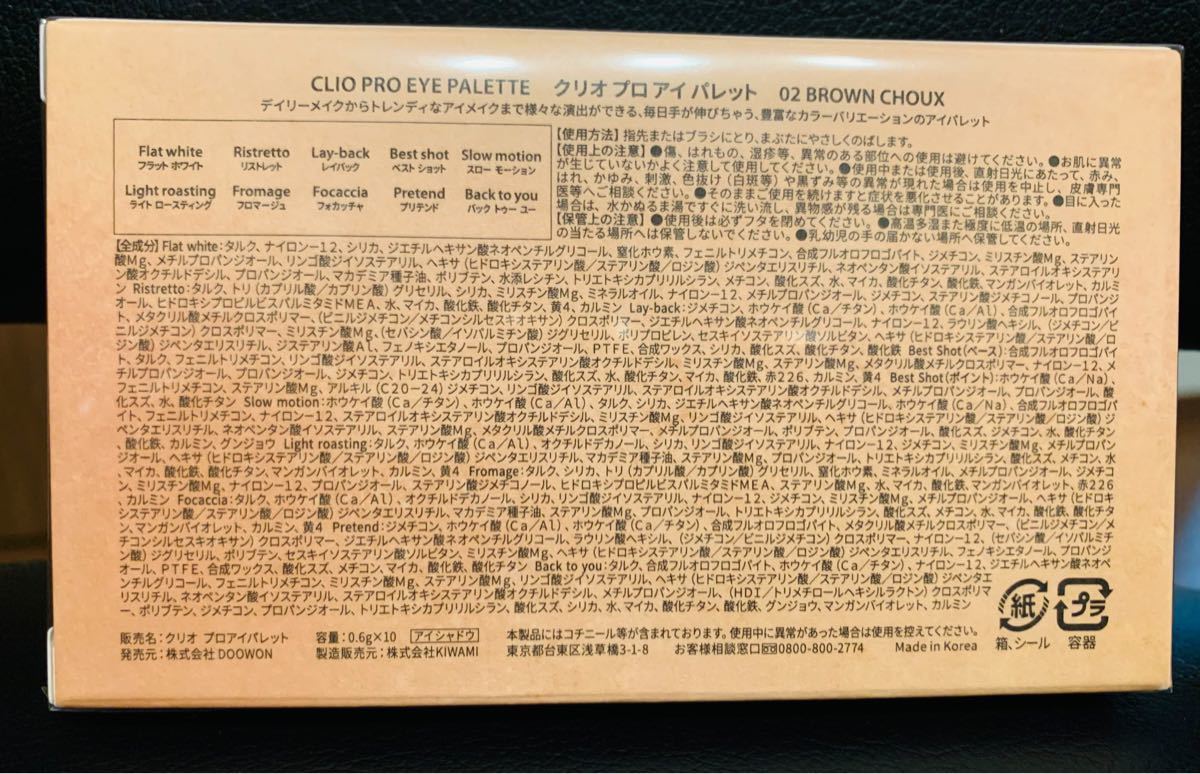 CLIO PRO EYE PALETTE クリオ プロ アイ パレット 02 BROWN CHOUX
デイリーメイクからトレンディなアイメイクまで様々な演出ができる、毎日手が伸びちゃう、豊富なカラーバリエーションのアイパレット
Flat white Ristretto Lay-back Best shot Slow motion
フラット ホワイト リストレット レイバック ベスト ショット スロー モーション
Light roasting Fromage Focaccia Pretend Back to you
ライト ロースティング フロマージュ フォカッチャ プリテンド バック トゥー ユー
【使用方法】指先またはブラシにとり、まぶたにやさしくのばします。
【使用上の注意】●傷、はれもの、湿疹等、異常のある部位への使用は避けてください。●お肌に異常
が生じていないかよく注意して使用してください。●使用中または使用後、直射日光にあたって、赤み、
はれ、かゆみ、刺激、色抜け(白斑等)や黒ずみ等の異常が現れた場合は使用を中止し、皮膚専門
医等へご相談ください。●そのままご使用を続けますと症状を悪化させることがあります。●目に入った
場合は、水かぬるま湯ですぐに洗い流し、異物感が残る場合は専門医にご相談ください。
【保管上の注意】●使用後は必ずフタを閉めてください。●高温多湿また極度に低温の場所、直射日光
の当たる場所へは保管しないでください。●乳幼児の手の届かない場所へ保管してください。
【全成分】Flat white:タルク、ナイロン-12、シリカ、ジエチルヘキサン酸ネオペンチルグリコール、窒化ホウ素、フェニルトリメチコン、合成フルオロフロゴパイト、ジメチコン、ミリスチン酸Mg、ステアリン
酸Mg、メチルプロパンジオール、リンゴ酸ジイソステアリル、ヘキサ(ヒドロキシステアリン酸/ステアリン酸/ロジン酸)ジペンタエリスリチル、ネオペンタン酸イソステアリル、ステアロイルオキシステアリ
ン酸オクチルドデシル、プロパンジオール、マカデミア種子油、ポリブテン、水添レシチン、トリエトキシカプリリルシラン、メチコン、酸化スズ、水、マイカ、酸化チタン、酸化鉄、マンガンバイオレット、カルミ
ン Ristretto:タルク、トリ(カプリル酸/カプリン酸)グリセリル、シリカ、ミリスチン酸Mg、ミネラルオイル、ナイロン-12、メチルプロパンジオール、ジメチコン、ステアリン酸ジメチコノール、プロパンジ
オール、ヒドロキシプロピルビスパルミタミドMEA、ステアリン酸Mg、水、マイカ、酸化鉄、酸化チタン、黄4、カルミン Lay-back:ジメチコン、ホウケイ酸(Ca/チタン)、ホウケイ酸(Ca/Al)、合成フルオロフロゴパイ
ト、メタクリル酸メチルクロスポリマー、(ビニルジメチコン/メチコンシルセスキオキサン)クロスポリマー、ジエチルヘキサン酸ネオペンチルグリコール、ナイロン-12、ラウリン酸ヘキシル、(ジメチコン/ビ
ニルジメチコン)クロスポリマー、ミリスチン酸Mg、(セバシン酸/イソパルミチン酸)ジグリセリル、ポリプロピレン、セスキイソステアリン酸ソルビタン、ヘキサ(ヒドロキシステアリン酸/ステアリン酸/ロ
ジン酸)ジペンタエリスリチル、ジステアリン酸Al、フェノキシエタノール、プロパンジオール、PTFE、合成ワックス、シリカ、酸化スズ、酸化チタン、酸化鉄 Best Shot(ベース):合成フルオロフロゴパイ
ト、タルク、フェニルトリメチコン、リンゴ酸ジイソステアリル、ステアロイルオキシステアリン酸オクチルドデシル、ミリスチン酸Mg、ステアリン酸Mg、メタクリル酸メチルクロスポリマー、ナイロン-12、メ
チルプロパンジオール、プロパンジオール、ジメチコン、トリエトキシカプリリルシラン、酸化スズ、水、酸化チタン、マイカ、酸化鉄、赤226、カルミン、黄4 Best Shot(ポイント):ホウケイ酸(Ca/Na)、
フェニルトリメチコン、ステアリン酸Mg、アルキル(C20-24)ジメチコン、リンゴ酸ジイソステアリル、ステアロイルオキシステアリン酸オクチルドデシル、メチルプロパンジオール、プロパンジオール、酸
化スズ、水、酸化チタン Slow motion:ホウケイ酸(Ca/チタン)、ホウケイ酸(Ca/Al)、タルク、シリカ、ジエチルヘキサン酸ネオペンチルグリコール、ホウケイ酸(Ca/Na)、合成フルオロフロゴパ
イト、フェニルトリメチコン、ナイロン-12、ステアロイルオキシステアリン酸オクチルドデシル、ミリスチン酸Mg、リンゴ酸ジイソステアリル、ヘキサ(ヒドロキシステアリン酸/ステアリン酸/ロジン酸)ジ
ペンタエリスリチル、ネオペンタン酸イソステアリル、ステアリン酸Mg、メタクリル酸メチルクロスポリマー、メチルプロパンジオール、ポリブテン、プロパンジオール、酸化スズ、メチコン、水、酸化チタン
、酸化鉄、カルミン、グンジョウ Light roasting:タルク、ホウケイ酸(Ca/Al)、オクチルドデカノール、シリカ、リンゴ酸ジイソステアリル、ナイロン-12、ジメチコン、ミリスチン酸Mg、メチルプロパン
ジオール、ヘキサ(ヒドロキシステアリン酸/ステアリン酸/ロジン酸)ジペンタエリスリチル、マカデミア種子油、ステアリン酸Mg、プロパンジオール、トリエトキシカプリリルシラン、酸化スズ、メチコン、水
、マイカ、酸化鉄、酸化チタン、マンガンバイオレット、カルミン、黄4 Fromage:タルク、シリカ、トリ(カプリル酸/カプリン酸)グリセリル、窒化ホウ素、ミネラルオイル、メチルプロパンジオール、ジメチコ
ン、ミリスチン酸Mg、ナイロン-12、プロパンジオール、ステアリン酸ジメチコノール、ヒドロキシプロピルビスパルミタミドMEA、ステアリン酸Mg、水、マイカ、酸化鉄、マンガンバイオレット、赤226
、カルミン Focaccia:タルク、ホウケイ酸(Ca/Al)、オクチルドデカノール、シリカ、リンゴ酸ジイソステアリル、ナイロン-12、ジメチコン、ミリスチン酸Mg、メチルプロパンジオール、ヘキサ(ヒドロキ
システアリン酸/ステアリン酸/ロジン酸)ジペンタエリスリチル、マカデミア種子油、ステアリン酸Mg、プロパンジオール、トリエトキシカプリリルシラン、酸化スズ、メチコン、水、マイカ、酸化鉄、酸化チタ
ン、マンガンバイオレット、カルミン、黄4 Pretend:ジメチコン、ホウケイ酸(Ca/Al)、ホウケイ酸(Ca/チタン)、合成フルオロフロゴパイト、メタクリル酸メチルクロスポリマー、(ビニルジメチコン/メ
チコンシルセスキオキサン)クロスポリマー、ジエチルヘキサン酸ネオペンチルグリコール、ラウリン酸ヘキシル、(ジメチコン/ビニルジメチコン)クロスポリマー、ナイロン-12、(セバシン酸/イソパルミチン
酸)ジグリセリル、ポリブテン、セスキイソステアリン酸ソルビタン、ミリスチン酸Mg、ヘキサ(ヒドロキシステアリン酸/ステアリン酸/ロジン酸)ジペンタエリスリチル、フェノキシエタノール、プロパンジ
オール、PTFE、合成ワックス、酸化スズ、メチコン、マイカ、酸化鉄、酸化チタン Back to you:タルク、合成フルオロフロゴパイト、ホウケイ酸(Ca/チタン)、ナイロン-12、ジエチルヘキサン酸ネオペ
ンチルグリコール、フェニルトリメチコン、ミリスチン酸Mg、ステアリン酸Mg、リンゴ酸ジイソステアリル、ヘキサ(ヒドロキシステアリン酸/ステアリン酸/ロジン酸)ジペンタエ
リスリチル、ネオペンタン酸イソステアリル、ステアロイルオキシステアリン酸オクチルドデシル、メチルプロパンジオール、(HDI/トリメチロールヘキシルラクトン)クロスポリマ
ー、ポリブテン、ジメチコン、プロパンジオール、トリエトキシカプリリルシラン、酸化スズ、シリカ、水、マイカ、酸化チタン、酸化鉄、グンジョウ、マンガンバイオレット、カルミン
紙 プラ
箱、シール 容器
販売名:クリオ プロアイパレット 容量:0.6g×10 アイシャドウ 本製品にはコチニール等が含まれております。使用中に異常があった場合は使用を控えてください。
発売元:株式会社DOOWON 製造販売元:株式会社KIWAMI 東京都台東区浅草橋3-1-8 お客様相談窓口0800-800-2774 Made in Korea